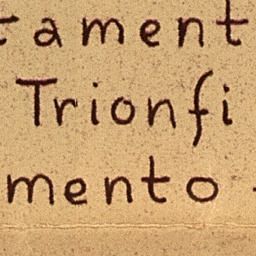 tament
Trionfi
mento